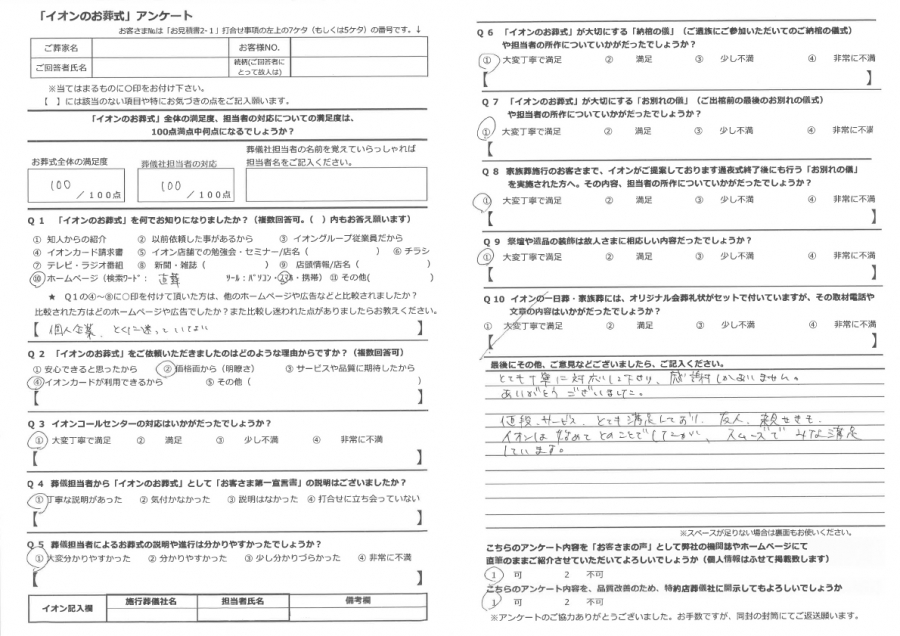 「イオンのお葬式」アンケート
お客さま№は「お見積書2-1」打合せ事項の左上の7ケタ（もしくは5ケタ）の番号です。↓
ご葬家名 お客様NO.
ご回答者氏名 続柄(ご回答者にとって故人は)
※当てはまるものに○印をお付け下さい。
【　】には該当のない項目や特にお気づきの点をご記入願います。
「イオンのお葬式」全体の満足度、担当者の対応についての満足度は、
100点満点中何点になるでしょうか？
お葬式全体の満足度
100 / 100点
葬儀社担当者の対応
100 / 100点
葬儀社担当者の名前を覚えていらっしゃれば
担当者名をご記入ください。
Q 1 「イオンのお葬式」を何でお知りになりましたか？（複数回答可。（　）内もお答え願います）
① 知人からの紹介 ② 以前依頼した事があるから ③ イオングループ従業員だから
④ イオンカード請求書 ⑤ イオン店舗での勉強会・セミナー/店名（　） ⑥ チラシ
⑦ テレビ・ラジオ番組 ⑧ 新聞・雑誌（　） ⑨ 店頭情報/店名（　）
⑩ ホームページ（検索ワード： 直葬 ツール：パソコン・スマホ・携帯）⑪ その他(　)
★ Q１の④～⑧に○印を付けて頂いた方は、他のホームページや広告などと比較されましたか？
比較された方はどのホームページや広告でしたか？また比較し迷われた点がありましたらお教えください。
【 個人企業、とくに迷っていない 】
Q 2 「イオンのお葬式」をご依頼いただきましたのはどのような理由からですか？（複数回答可）
① 安心できると思ったから ② 価格面から（明瞭さ） ③ サービスや品質に期待したから
④ イオンカードが利用できるから ⑤ その他（　）
【　】
Q 3 イオンコールセンターの対応はいかがだったでしょうか？
① 大変丁寧で満足 ② 満足 ③ 少し不満 ④ 非常に不満
【　】
Q 4 葬儀担当者から「イオンのお葬式」として「お客さま第一宣言書」の説明はございましたか？
① 丁寧な説明があった ② 気付かなかった ③ 説明はなかった ④ 打合せに立ち会っていない
【　】
Q 5 葬儀担当者によるお葬式の説明や進行は分かりやすかったでしょうか？
① 大変分かりやすかった ② 分かりやすかった ③ 少し分かりづらかった ④ 非常に不満
【　】
イオン記入欄 施行葬儀社名 担当者氏名 備考欄
Q 6 「イオンのお葬式」が大切にする「納棺の儀」（ご遺族にご参加いただいてのご納棺の儀式）
や担当者の所作についていかがだったでしょうか？
① 大変丁寧で満足 ② 満足 ③ 少し不満 ④ 非常に不満
【　】
Q 7 「イオンのお葬式」が大切にする「お別れの儀」（ご出棺前の最後のお別れの儀式）
や担当者の所作についていかがだったでしょうか？
① 大変丁寧で満足 ② 満足 ③ 少し不満 ④ 非常に不満
【　】
Q 8 家族葬施行のお客さまで、イオンがご提案しております通夜式終了後にも行う「お別れの儀」
を実施された方へ。その内容、担当者の所作についていかがだったでしょうか？
① 大変丁寧で満足 ② 満足 ③ 少し不満 ④ 非常に不満
【　】
Q 9 祭壇や遺品の装飾は故人さまに相応しい内容だったでしょうか？
① 大変丁寧で満足 ② 満足 ③ 少し不満 ④ 非常に不満
【　】
Q 10 イオンの一日葬・家族葬には、オリジナル会葬礼状がセットで付いていますが、その取材電話や
文章の内容はいかがだったでしょうか？
① 大変丁寧で満足 ② 満足 ③ 少し不満 ④ 非常に不満
【　】
最後にその他、ご意見などございましたら、ご記入ください。
とても丁寧に対応して下さり、感謝しかありません。
ありがとうございました。
値段、サービス、とても満足しており、友人、親せきも、
イオンは初めてとのことでしたが、スムーズで みな満足
しています。
※スペースが足りない場合は裏面もお使いください。
こちらのアンケート内容を「お客さまの声」として弊社の機関誌やホームページにて
直筆のままご紹介させていただいてよろしいでしょうか（個人情報はふせて掲載致します）
1 可 2 不可
こちらのアンケート内容を、品質改善のため、特約店葬儀社に開示してもよろしいでしょうか
1 可 2 不可
※アンケートのご協力ありがとうございました。お手数ですが、同封の封筒にてご返送願います。